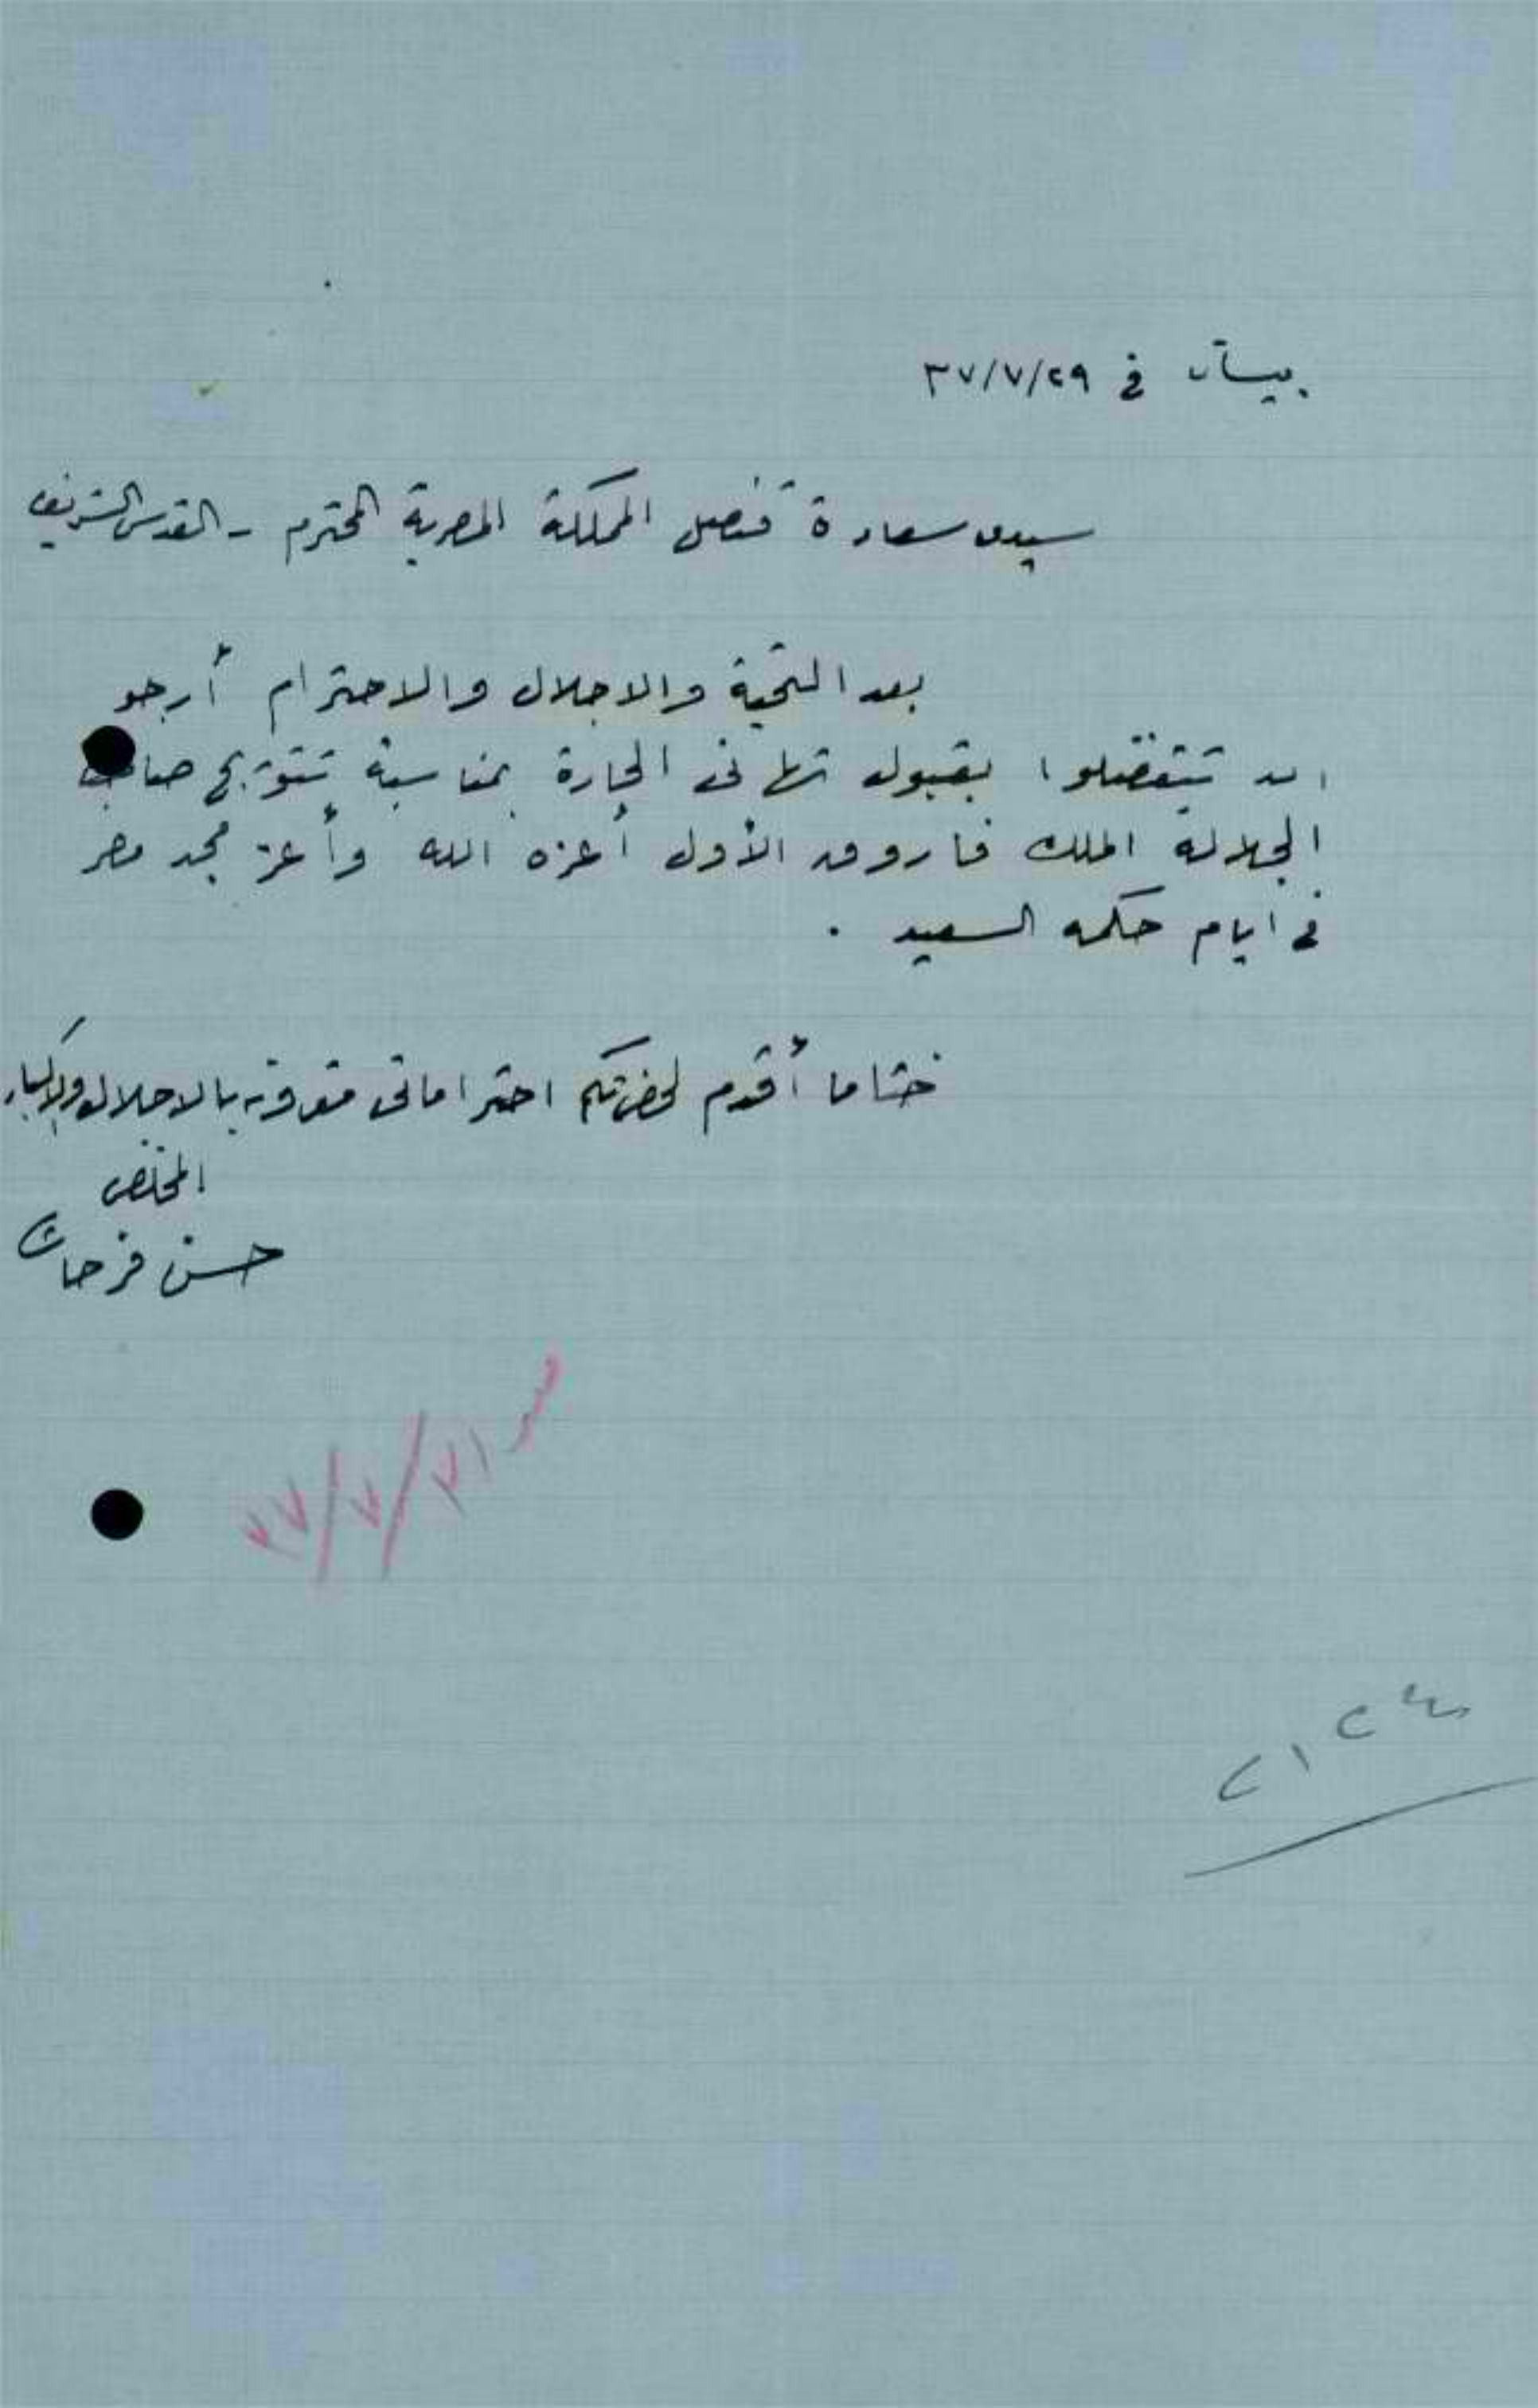 بيسان في ٣٧/٧/٢٩
سيدي سعادة قنصل المملكة المصرية المحترم - القدس الشريف
بعد التحية والاجلال والاحترام أرجو
ان تتفضلوا بقبول تهانى الحارة بمناسبة تتويج صاحب
الجلالة الملك فاروق الأول أعزه الله وأعز مجد مصر
في ايام حكمه السعيد .
ختاما أقدم لحضرتكم احتراماتى مقرونه بالاجلال والاكبار
المخلص
حسن فرحات
٣٧/٧/٣١